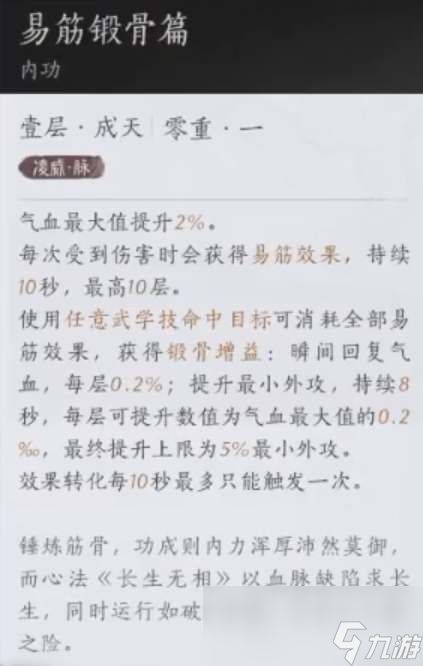 易筋锻骨篇
内功
壹层·成天 零重·一
凌威·脉
气血最大值提升2%。
每次受到伤害时会获得易筋效果，持续
10秒，最高10层。
使用任意武学技命中目标可消耗全部易
筋效果，获得锻骨增益：瞬间回复气
血，每层0.2%；提升最小外攻，持续8
秒，每层可提升数值为气血最大值的0.2
‰，最终提升上限为5%最小外攻。
效果转化每10秒最多只能触发一次。
锤炼筋骨，功成则内力浑厚沛然莫御，
而心法《长生无相》以血脉缺陷求长
生，同时运行如破
之险。
九游